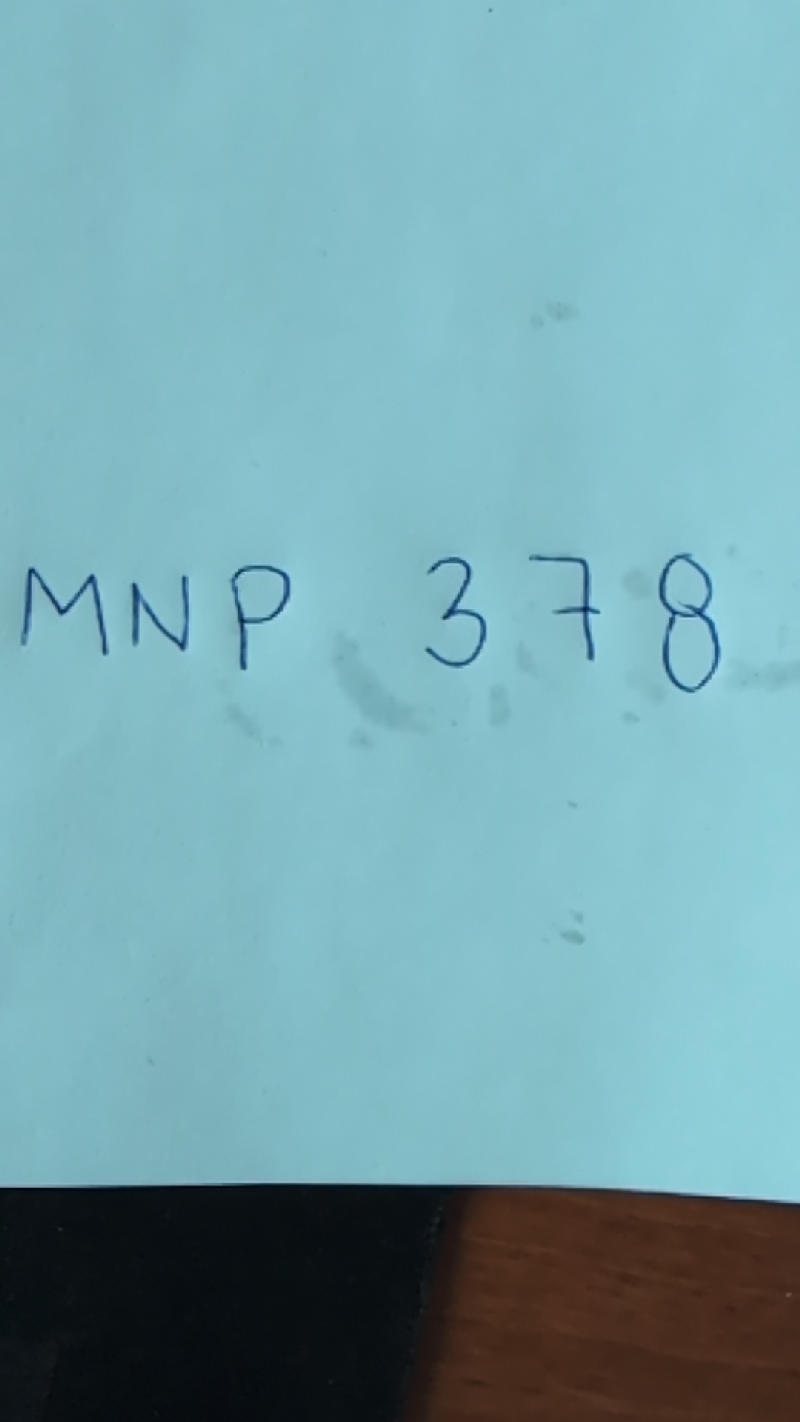 MNP 378